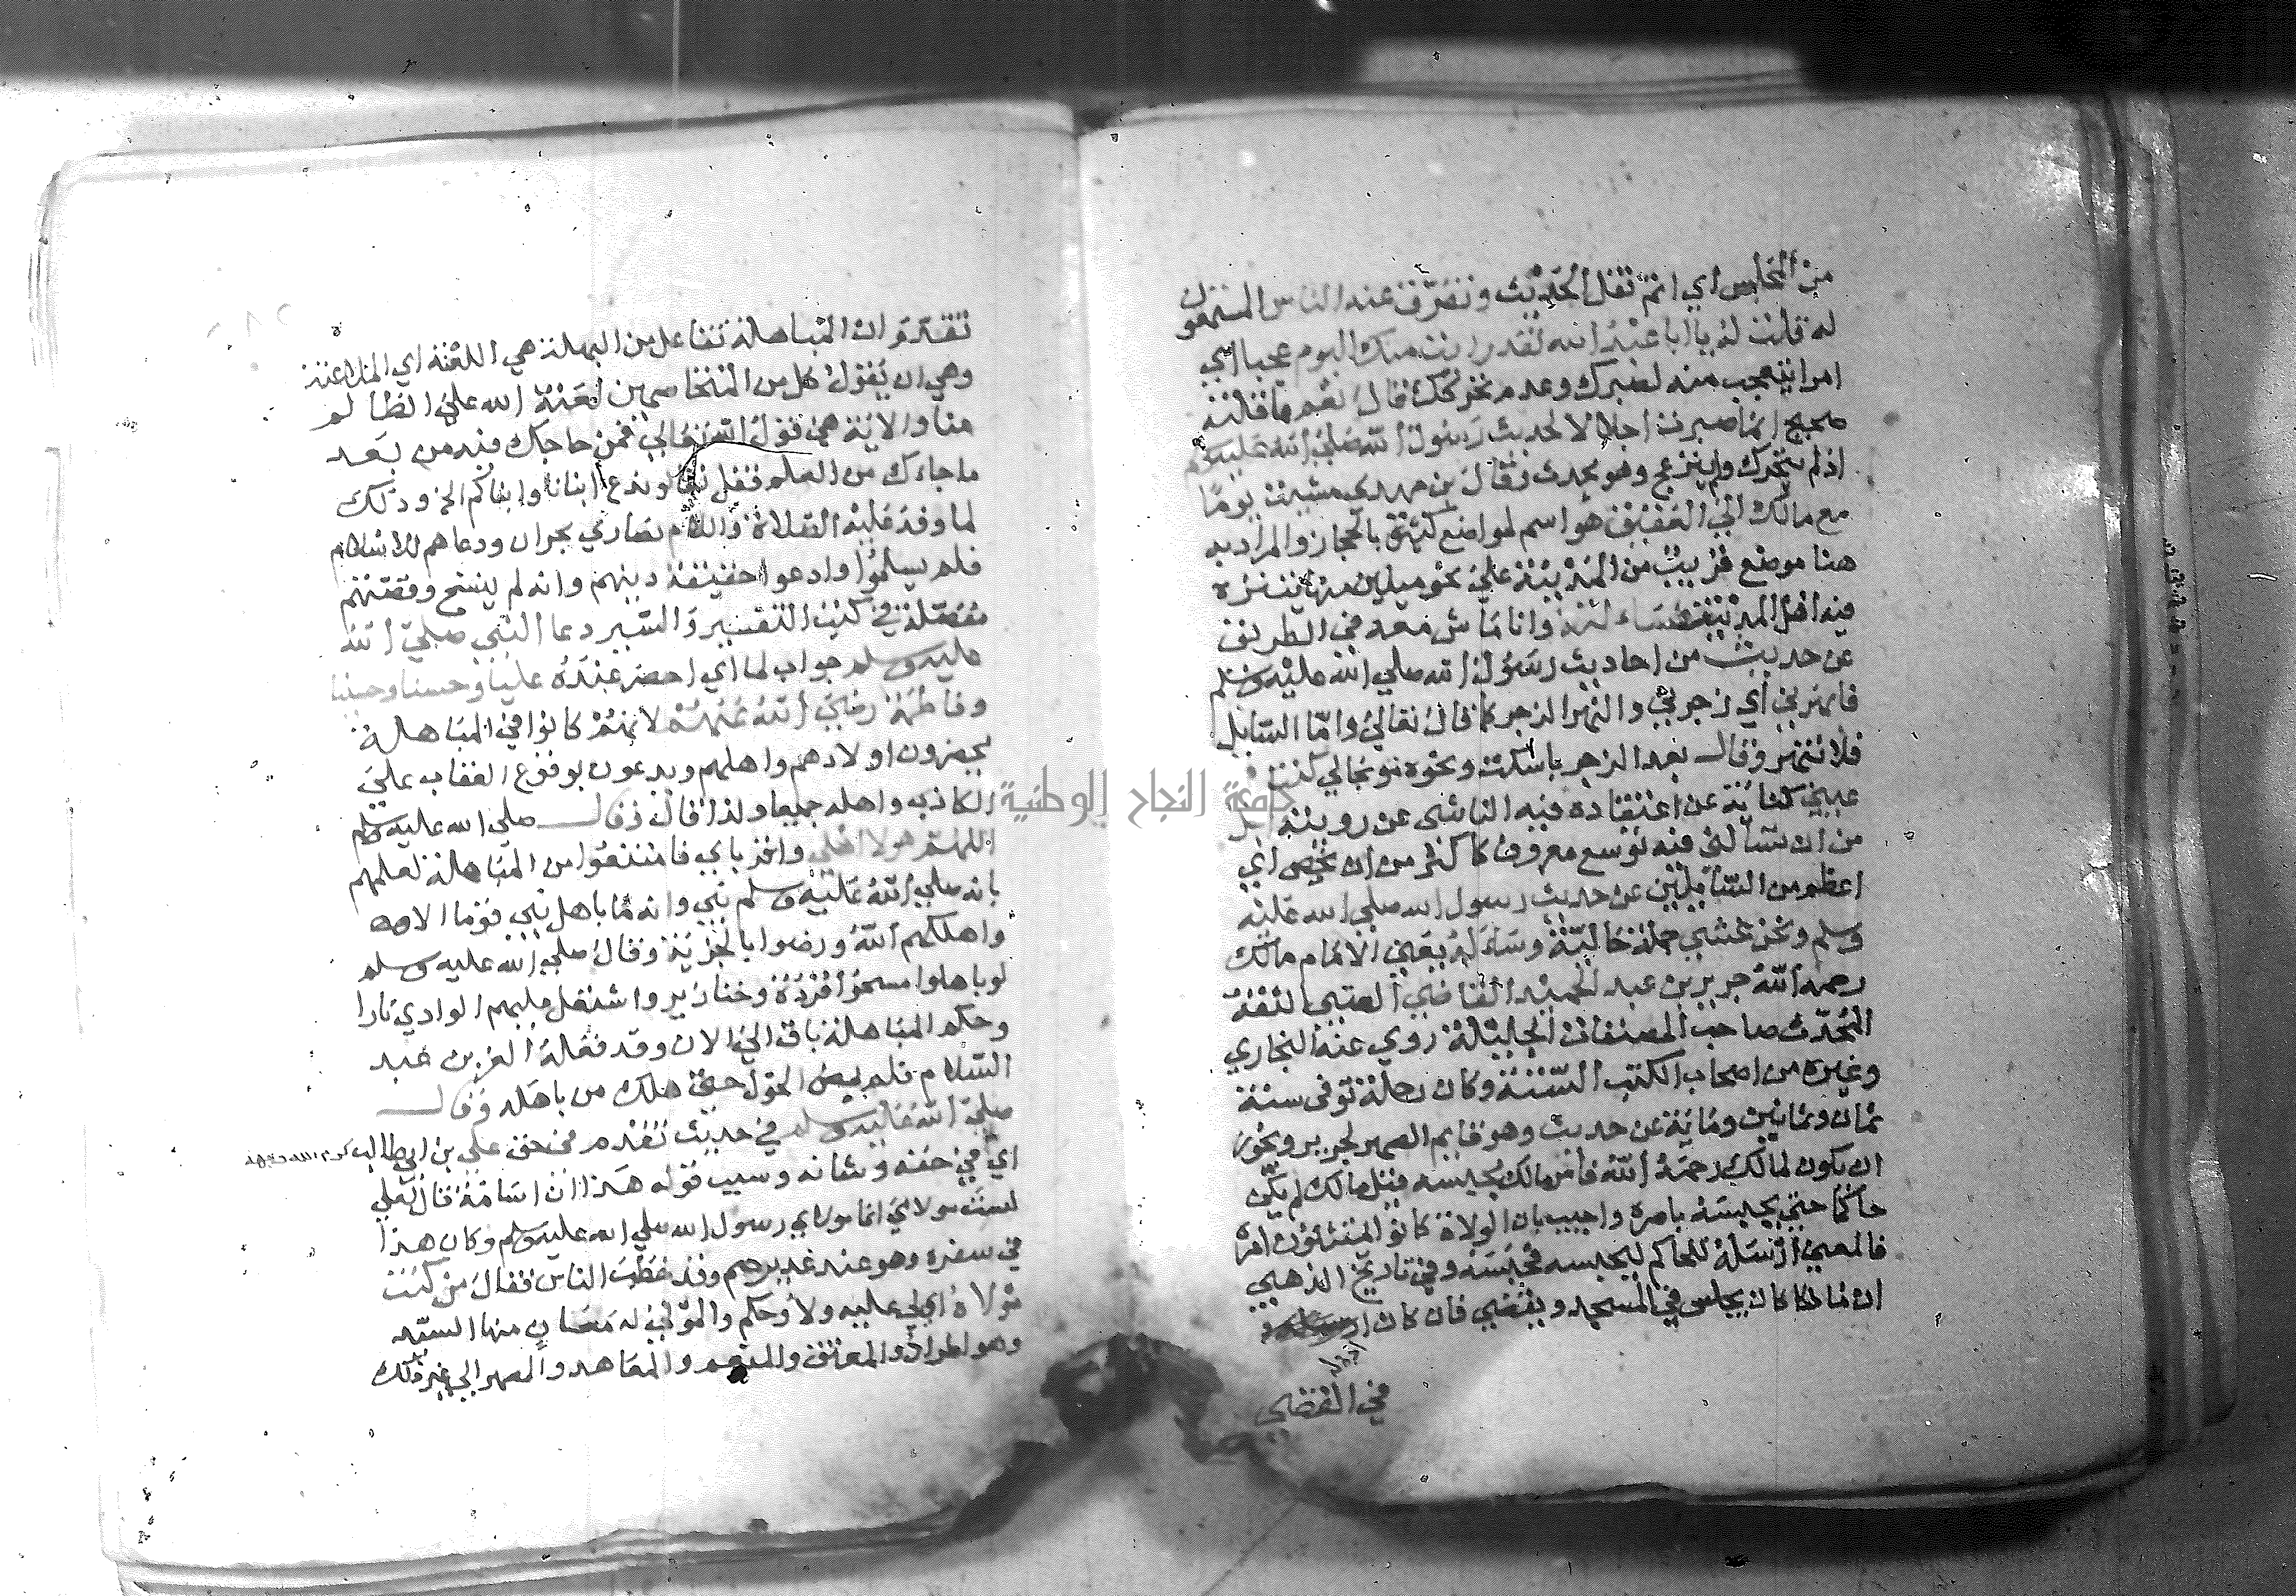 من المجلس أي اتم نقل الحديث وتفرق عنه الناس المستمعون
له قلت له يا ابا عبد الله لقد رايت منك اليوم عجبا اي
امرا يتعجب منه لصبرك وعدم تحركك قال نعم ما قلته
صحيح انما صبرت اجلالا لحديث رسول الله صلى الله عليه وسلم
اذ لم يتحرك ولم ينزعج وهو يحدث وقال بن مهدي مشيت يوما
مع مالك الي العقيق هو اسم لمواضع كثيرة بالحجاز والمراد به
هنا موضع قريب من المدينة علي نحو ميلين منها يتنزه
فيه اهل المدينة فساءلته وانا ماش معه في الطريق
عن حديث من احاديث رسول الله صلي الله عليه وسلم
فانتهرني أي زجرني والنهر الزجر كما قال تعالي واما السايل
فلا تنهر وقال بعد الزجر باسكت ونحوه موبخا لي كنت في
عيني كناية عن اعتقاده فيه الناشى عن رويته اجل
من ان تسألني فيه توسع معروف كاكثر من ان يحصى أي
اعظم من السائلين عن حديث رسول الله صلي الله عليه
وسلم ونحن نمشي جملة حالية وساله يعني الامام مالك
رحمه الله جرير بن عبد الحميد القاضي الضبي الثقة
المحدث صاحب المصنفات الجليلة روي عنه البخاري
وغيره من اصحاب الكتب الستة وكان رحلة توفى سنة
ثمان وثمانين وماية عن حديث وهو قايم الضمير لجرير ويجوز
ان يكون لمالك رحمه الله فامر مالك بحبسه فيل مالك لم يكن
حاكما حتى يحبسه بامره واجيب بان الولاة كانوا امره
فالمعنى ارسله للحاكم ليحبسه فحبسه وفي تاريخ الذهبي
ان مالكا كان يجلس في المسجد ويقضي فان كان
في القضي
تقدم ان المباهلة تفاعل من البهلة هي اللعنة اي الملاعنة
وهي ان يقول كل من المتخاصمين لعنة الله علي الظالم
منا والاية هي قول الله تعالي فمن حاجك فيه من بعد
ما جاءك من العلم فقل تعالوا ندع ابنانا وابناكم الخ وذلك
لما وفد عليه الصلاة والسلام نصاري نجران ودعاهم للاسلام
فلم يسلموا وادعوا حقيقة دينهم وانه لم ينسخ وقصتهم
مفصلة في كتب التفسير والسير دعا النبي صلي الله
عليه وسلم جواب لما أي احضر عنده عليا وحسنا وحسينا
وفاطمة رضي الله عنهم لانهم كانوا في المباهلة
يحضرون اولادهم واهلهم ويدعون بوقوع العقاب علي
الكاذب واهله جميعا ولذا قال وقال صلي الله عليه وسلم
اللهم هولا اهلي واقرباي فامتنعوا من المباهلة لعلمهم
بانه صلي الله عليه وسلم نبي وانه ما باهل نبي قوما الا
واهلكهم الله ورضوا بالجزية وقال صلي الله عليه وسلم
لو باهلوا مسخوا قردة وخنازير واشتعل عليهم الوادي نارا
وحكم المباهلة باق الي الان وقد فعله العز بن عبد
السلام فلم يمض الحول حتى هلك من باهله وقال
صلي الله عليه وسلم في حديث تقدم في حق علي بن ابي طالب كرم الله وجهه
اي في حقه وشانه وسبب قوله هذا ان اسامة قال لعلي
لست مولاي انما مولاي رسول الله صلي الله عليه وسلم وكان هذا
في سفره وهو عند غدير وقد خطب الناس فقال من كنت
مولاه اي لي عليه ولاء وحكم والمولى له معان منها السيد
وهو المراد والمعتق والمنعم والمعاهد والصهر الي غير ذلك
جامعة النجاح الوطنية